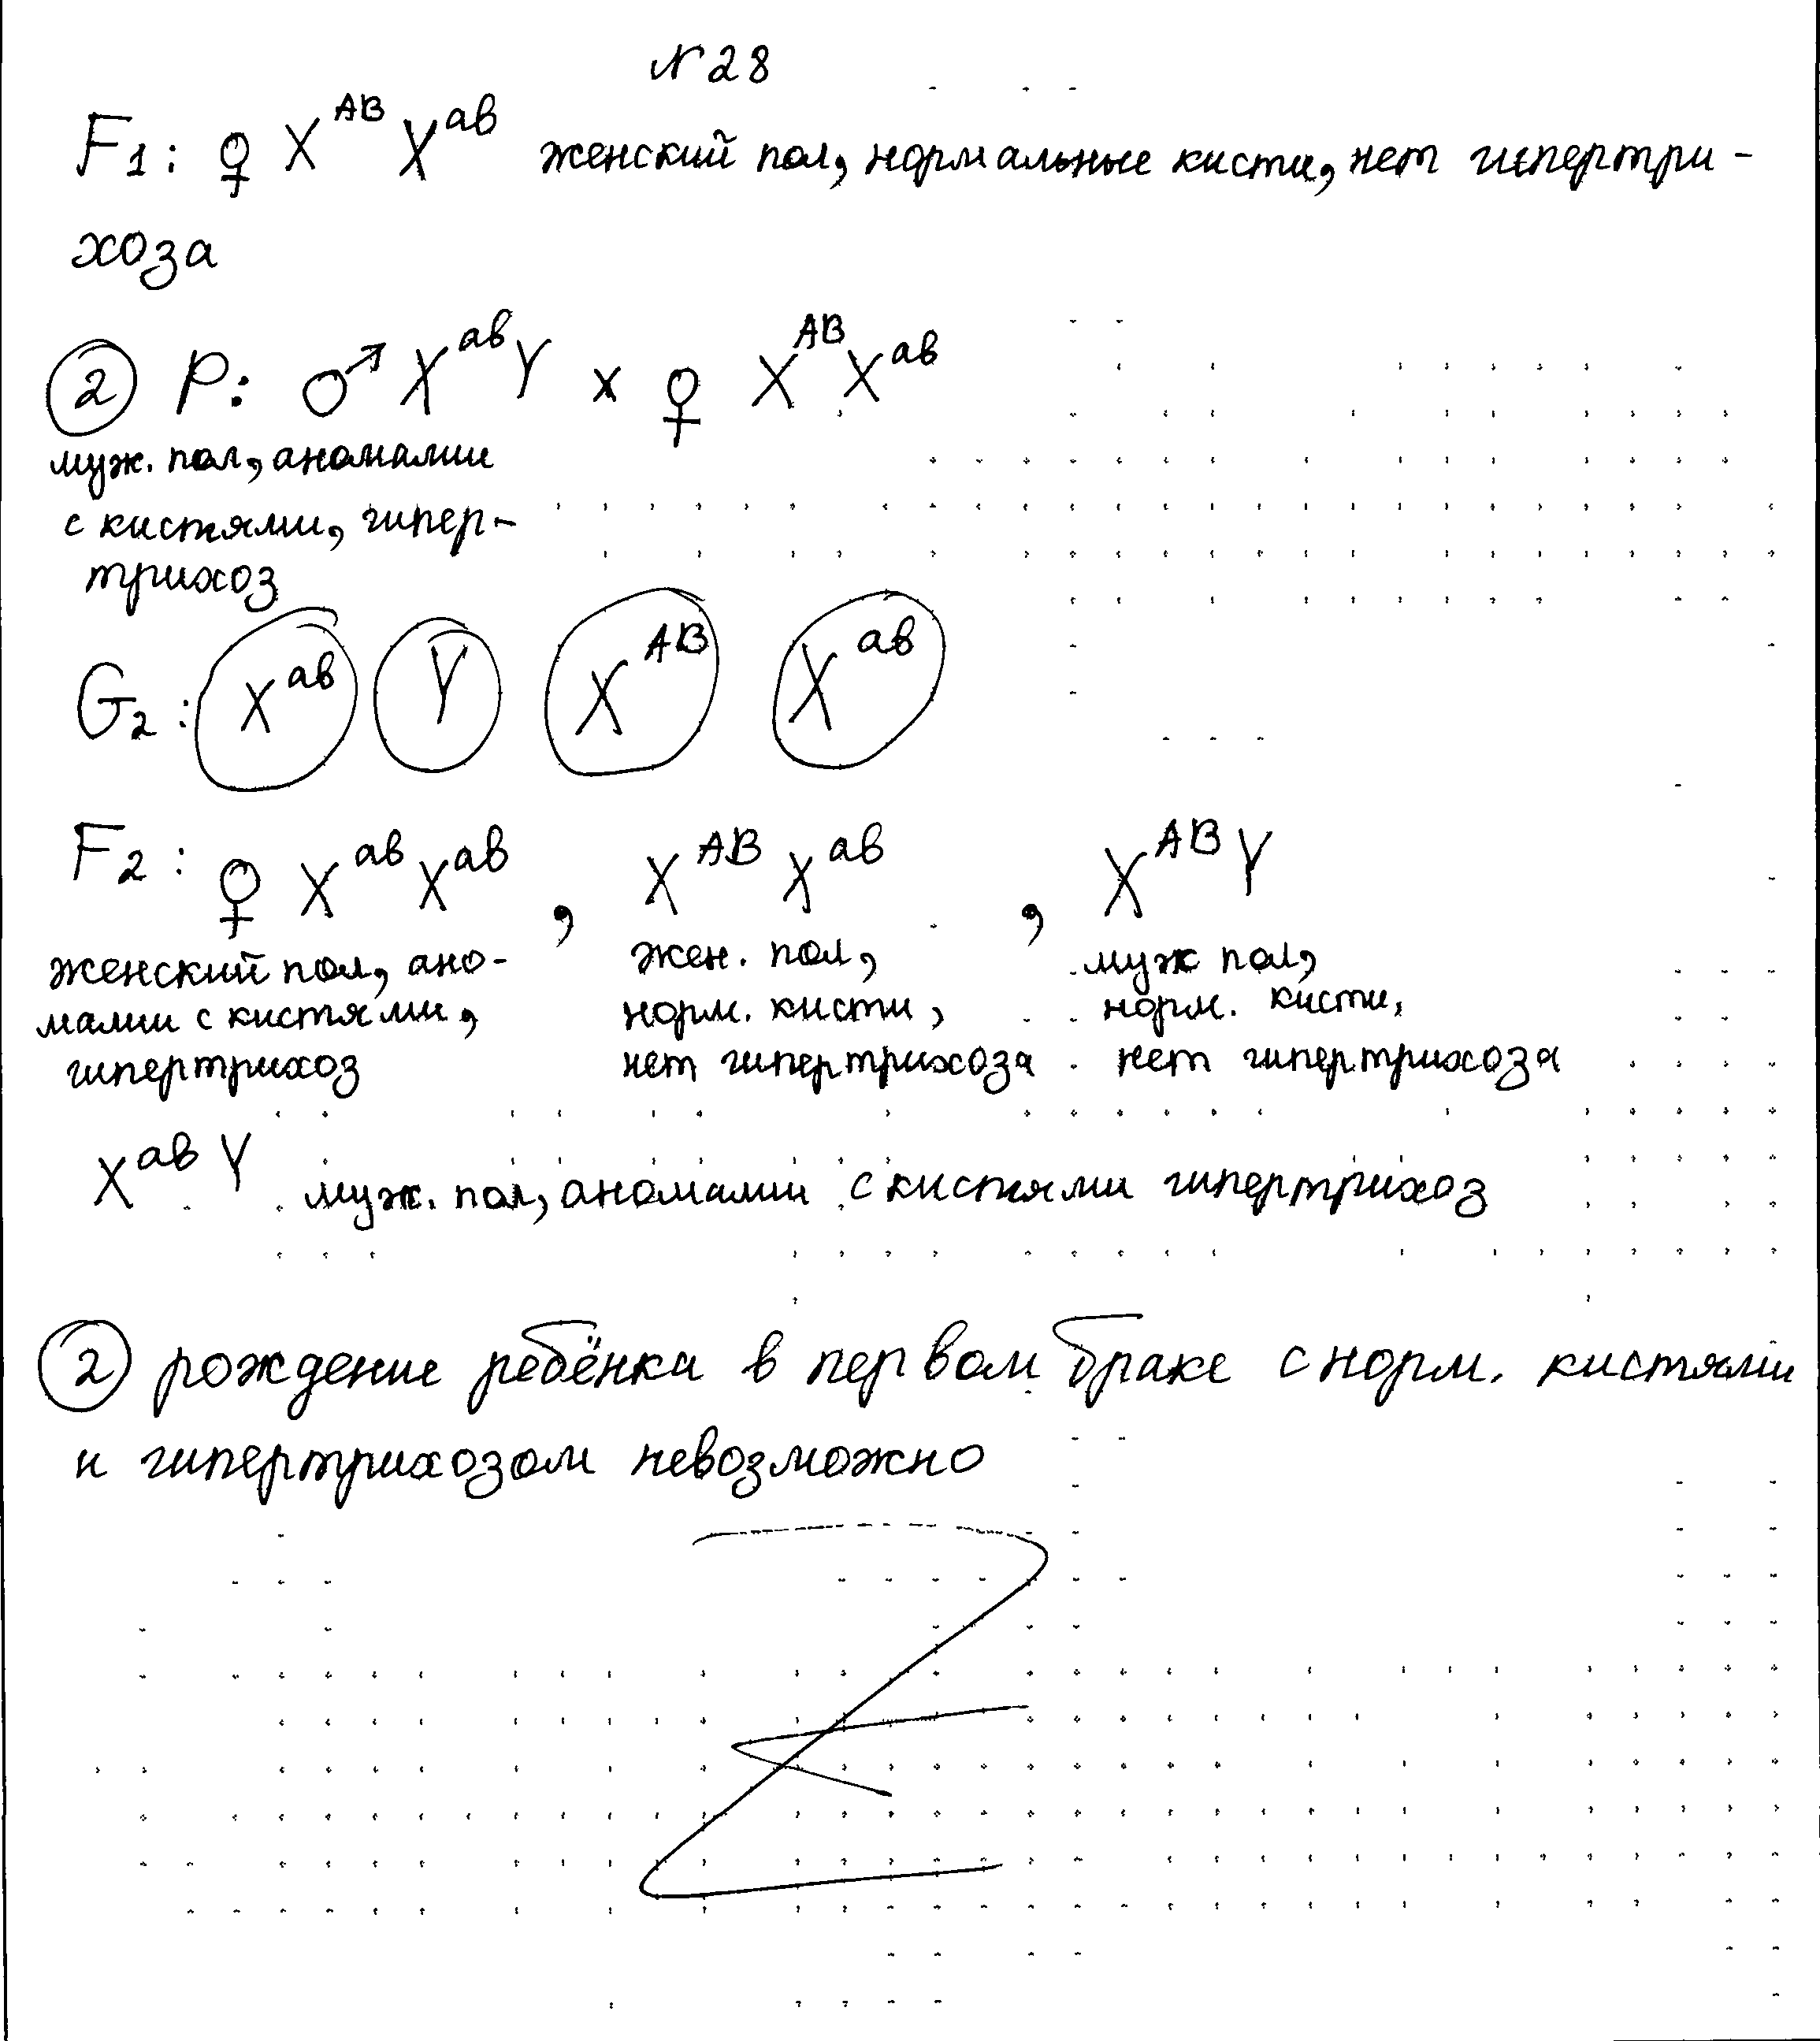 N28
F1: ♀ X^AB X^ab женский пол, нормальные кисти, нет гипертри-
хоза
② P: ♂ X^ab Y x ♀ X^AB X^ab
муж. пол, аномалии
с кистями, гипер-
трихоз
G2: X^ab Y X^AB X^ab
F2: ♀ X^ab X^ab , X^AB X^ab , X^AB Y
женский пол, ано- жен. пол, муж пол,
малии с кистями, норм. кисти, норм. кисти,
гипертрихоз нет гипертрихоза нет гипертрихоза
X^ab Y муж. пол, аномалии с кистями гипертрихоз
② рождение ребёнка в первом браке с норм. кистями
и гипертрихозом невозможно